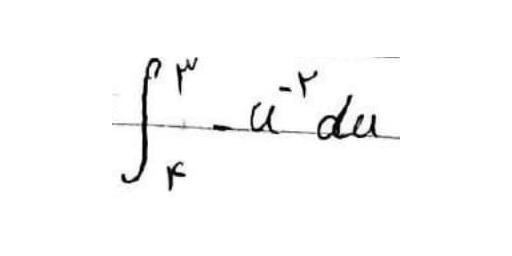 ∫_۴^۳ -u^{-۲} du